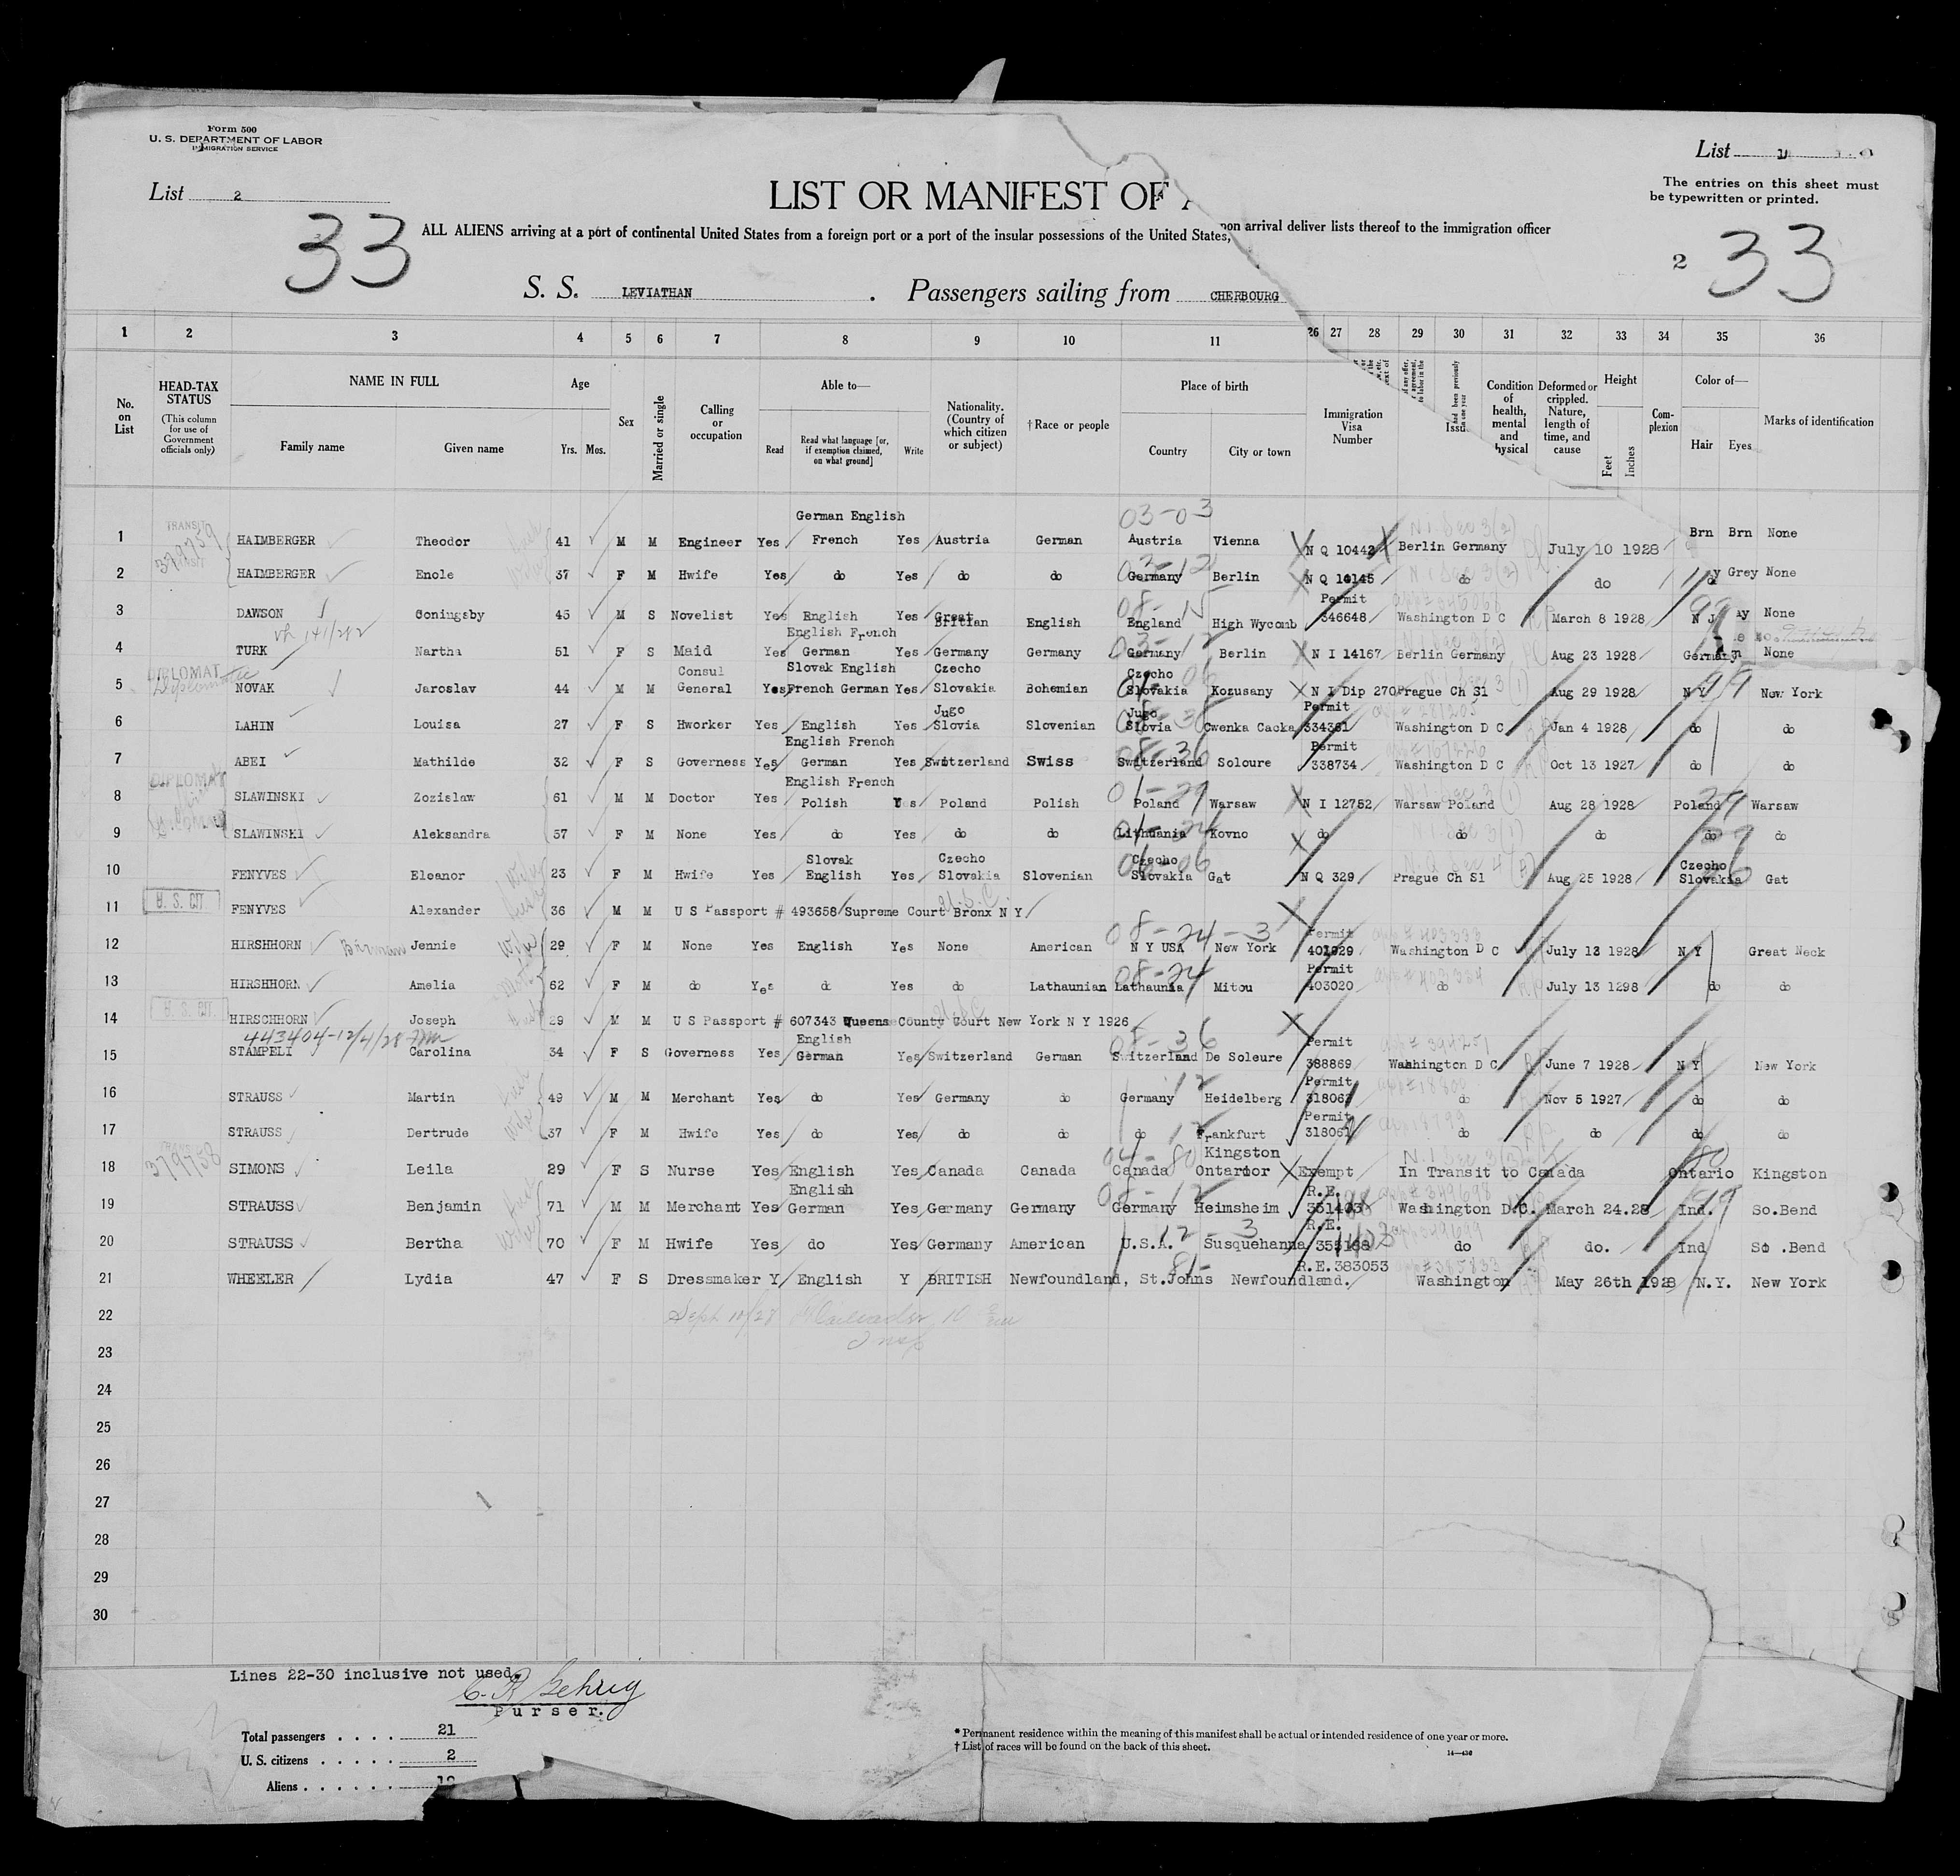 Form 500
U. S. DEPARTMENT OF LABOR
IMMIGRATION SERVICE
List 2
List
LIST OR MANIFEST OF
The entries on this sheet must
be typewritten or printed.
33
ALL ALIENS arriving at a port of continental United States from a foreign port or a port of the insular possessions of the United States,
pon arrival deliver lists thereof to the immigration officer
2 33
S. S. LEVIATHAN . Passengers sailing from CHERBOURG
1 2 3 4 5 6 7 8 9 10 11 26 27 28 29 30 31 32 33 34 35 36
No. on List
HEAD-TAX STATUS
(This column for use of Government officials only)
NAME IN FULL
Family name Given name
Age
Yrs. Mos.
Sex
Married or single
Calling or occupation
Able to—
Read Read what language [or, if exemption claimed, on what ground] Write
Nationality. (Country of which citizen or subject)
†Race or people
Place of birth
Country City or town
Immigration Visa Number
Issu
Condition of health, mental and hysical
Deformed or crippled. Nature, length of time, and cause
Height
Feet Inches
Com-plexion
Color of—
Hair Eyes
Marks of identification
TRANSIT 379759
1 HAIMBERGER Theodor 41 M M Engineer Yes German English French Yes Austria German 03-03 Austria Vienna N Q 10442 Berlin Germany July 10 1928 Brn Brn None
2 HAIMBERGER Enole 37 F M Hwife Yes do Yes do do Germany Berlin N Q 10145 do do y Grey None
3 DAWSON Coningsby 45 M S Novelist Yes English Yes Great Britian English England High Wycomb Permit 346648 Washington D C March 8 1928 N J ay None
4 TURK Nartha 51 F S Maid Yes English French German Yes Germany Germany Germany Berlin N I 14167 Berlin Germany Aug 23 1928 Germany None
DIPLOMAT
5 NOVAK Jaroslav 44 M M Consul General Yes Slovak English French German Yes Czecho Slovakia Bohemian Czecho Slovakia Kozusany N I Dip 270 Prague Ch Sl Aug 29 1928 N Y New York
6 LAHIN Louisa 27 F S Hworker Yes English Yes Jugo Slovia Slovenian Jugo Slovia Cwenka Cacka Permit 334361 Washington D C Jan 4 1928 do do
7 ABEI Mathilde 32 F S Governess Yes English French German Yes Switzerland Swiss 08-36 Switzerland Soloure Permit 338734 Washington D C Oct 13 1927 do do
DIPLOMAT
8 SLAWINSKI Zozislaw 61 M M Doctor Yes English French Polish Yes Poland Polish 01-29 Poland Warsaw N I 12752 Warsaw Poland Aug 28 1928 Poland Warsaw
9 SLAWINSKI Aleksandra 57 F M None Yes do Yes do do Lithuania Kovno do do do do do
10 FENYVES Eleanor 23 F M Hwife Yes Slovak English Yes Czecho Slovakia Slovenian Czecho Slovakia Gat N Q 329 Prague Ch Sl Aug 25 1928 Czecho Slovakia Gat
U. S. CIT
11 FENYVES Alexander 36 M M U S Passport # 493658 Supreme Court Bronx N Y
12 HIRSHHORN Jennie 29 F M None Yes English Yes None American 08-24-3 N Y USA New York Permit 401929 Washington D C July 13 1928 N Y Great Neck
13 HIRSHHORN Amelia 62 F M do Yes do Yes do Lathaunian 08-24 Lathaunia Mitou Permit 403020 do July 13 1298 do do
U. S. CIT.
14 HIRSCHHORN Joseph 29 M M U S Passport # 607343 Queens County Court New York N Y 1926
443404-12/4/28
15 STAMPELI Carolina 34 F S Governess Yes English German Yes Switzerland German 08-36 Switzerland De Soleure Permit 388869 Washington D C June 7 1928 N Y New York
16 STRAUSS Martin 49 M M Merchant Yes do Yes Germany do 12 Germany Heidelberg Permit 318062 do Nov 5 1927 do do
17 STRAUSS Dertrude 37 F M Hwife Yes do Yes do do do 12 Frankfurt Permit 318061 do do do do
379758
18 SIMONS Leila 29 F S Nurse Yes English Yes Canada Canada 04-80 Canada Kingston Ontario Exempt In Transit to Canada Ontario Kingston
19 STRAUSS Benjamin 71 M M Merchant Yes English German Yes Germany Germany 08-12 Germany Heimsheim R.E. 351403 Washington D.C. March 24.28 Ind. So.Bend
20 STRAUSS Bertha 70 F M Hwife Yes do Yes Germany American U.S.A. Susquehanna R.E. 355168 do do. Ind So .Bend
21 WHEELER Lydia 47 F S Dressmaker Y English Y BRITISH Newfoundland, St.Johns Newfoundland. R.E.383053 Washington May 26th 1928 N.Y. New York
22
23
24
25
26
27
28
29
30
Lines 22-30 inclusive not used.
C. R. Gehrig
Purser.
Total passengers . . . . 21
U. S. citizens . . . . 2
Aliens . . . . . . 19
* Permanent residence within the meaning of this manifest shall be actual or intended residence of one year or more.
† List of races will be found on the back of this sheet.
14—430